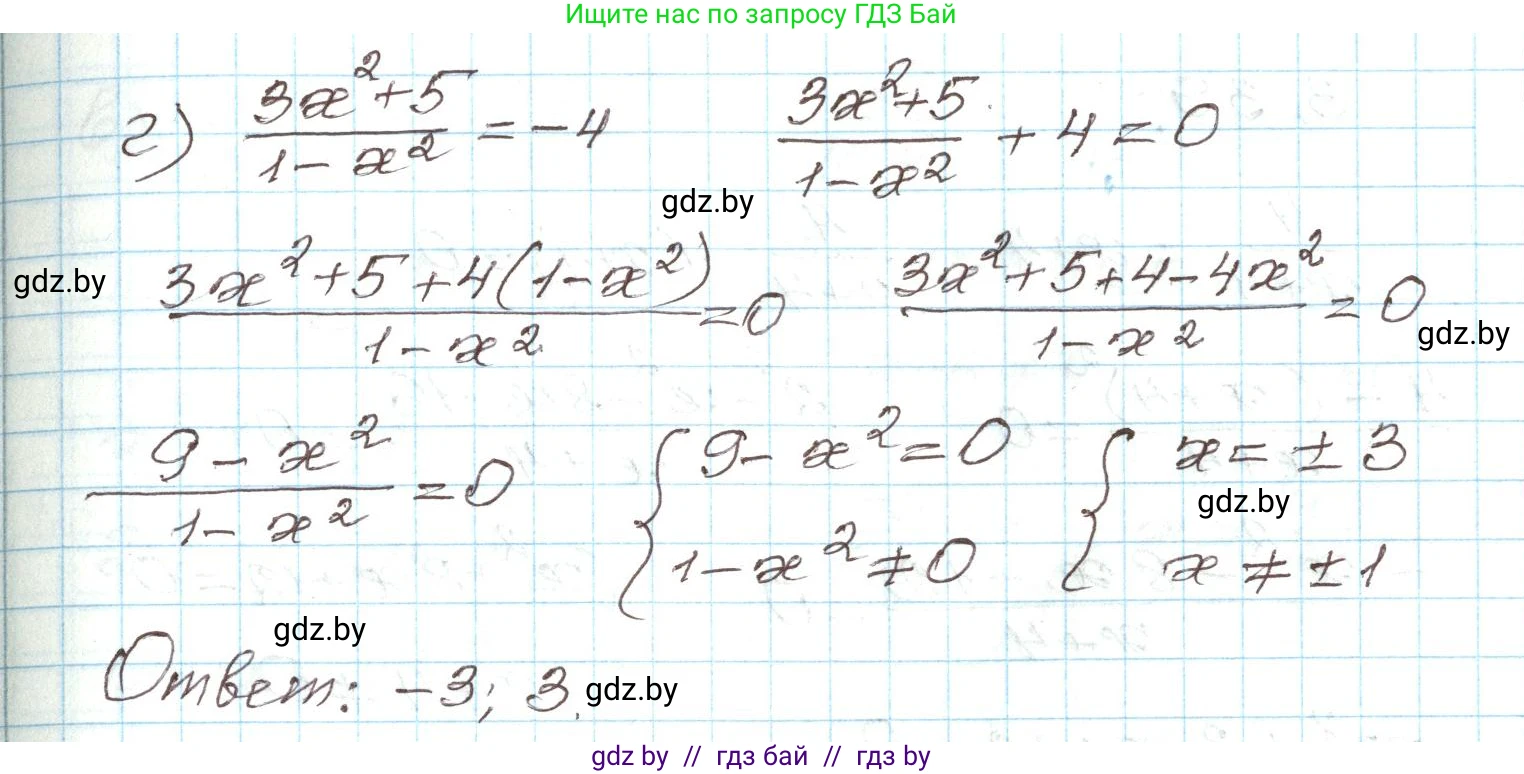 Ищите нас по запросу ГДЗ Бай
г) (3x²+5)/(1-x²) = -4   (3x²+5)/(1-x²) + 4 = 0
gdz.by
gdz.by
(3x²+5+4(1-x²))/(1-x²) = 0   (3x²+5+4-4x²)/(1-x²) = 0
gdz.by
(9-x²)/(1-x²) = 0   { 9-x²=0   { x = ±3
gdz.by
1-x² ≠ 0   x ≠ ±1
gdz.by
Ответ: -3; 3.
gdz.by
gdz by // гдз бай // гдз by